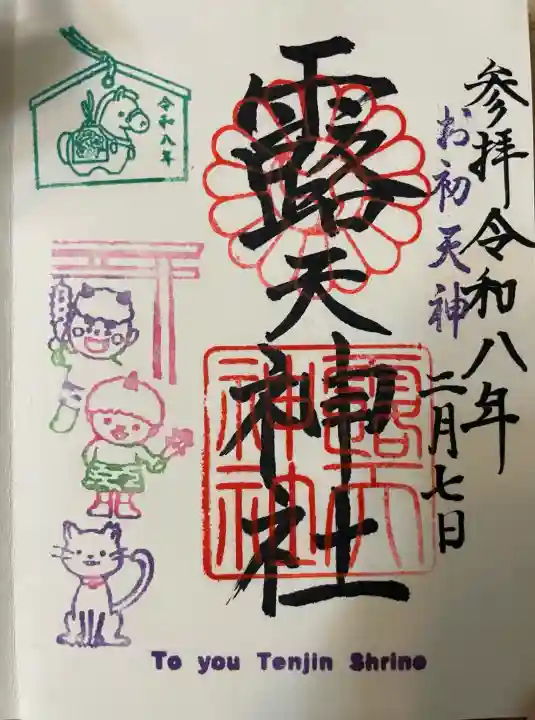 参拝令和八年
二月七日
お初天神
露天神社
令和八年
露天
神社
To you Tenjin Shrine